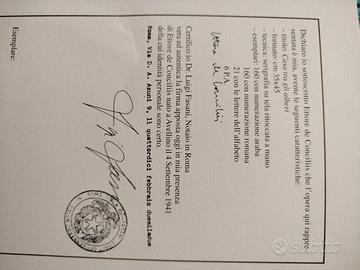 Dichiaro io sottoscritto Ettore de Conciliis che l'opera qui rappre-
sentata è mia, avente le seguenti caratteristiche:
- titolo: Casa tra gli alberi
- formato: cm 35x45
- tecnica: serigrafia su tela ritoccata a mano
- esemplari: 160 con numerazione araba
160 con numerazione romana
21 con le lettere dell'alfabeto
6 P.A.
Ettore de Conciliis
Certifico io Dr. Luigi Fasani, Notaio in Roma
vera ed autentica la firma apposta oggi in mia presenza
di Ettore de Conciliis nato a Avellino il 4 Settembre 1941
della cui identità personale sono certo.
Roma, Via D. A. Azuni 9, il quattordici febbraio duemiladue
Esemplare:
Subito.it